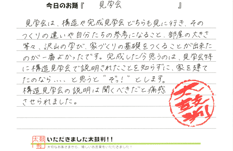 今日のお題『 見学会 』
見学会は、構造や完成見学会どちらも見に行き、その
つくりの違いや自分たちの参考になること、部屋の大き
さ等々、沢山の学び、家づくりの基礎をつくることが出来た
のが一番よかったです。完成したら思うのは、見学会特
に構造見学会で説明されたことを知らずに、家を建て
たのなら…。と思うと「ぞっ！」とします。
構造見学会の説明は聞くべきだと痛感
させられました。
いただきました大賛判!!